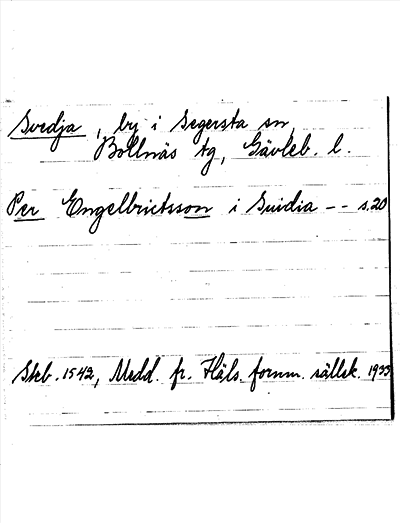 Svedja, by i Segersta sn,
Bollnäs tg, Gävleb. l.
Per Engelbrictsson i Suidia -- s. 20
Skb. 1542, Medd. fr. Häls. fornm. sällsk. 1933